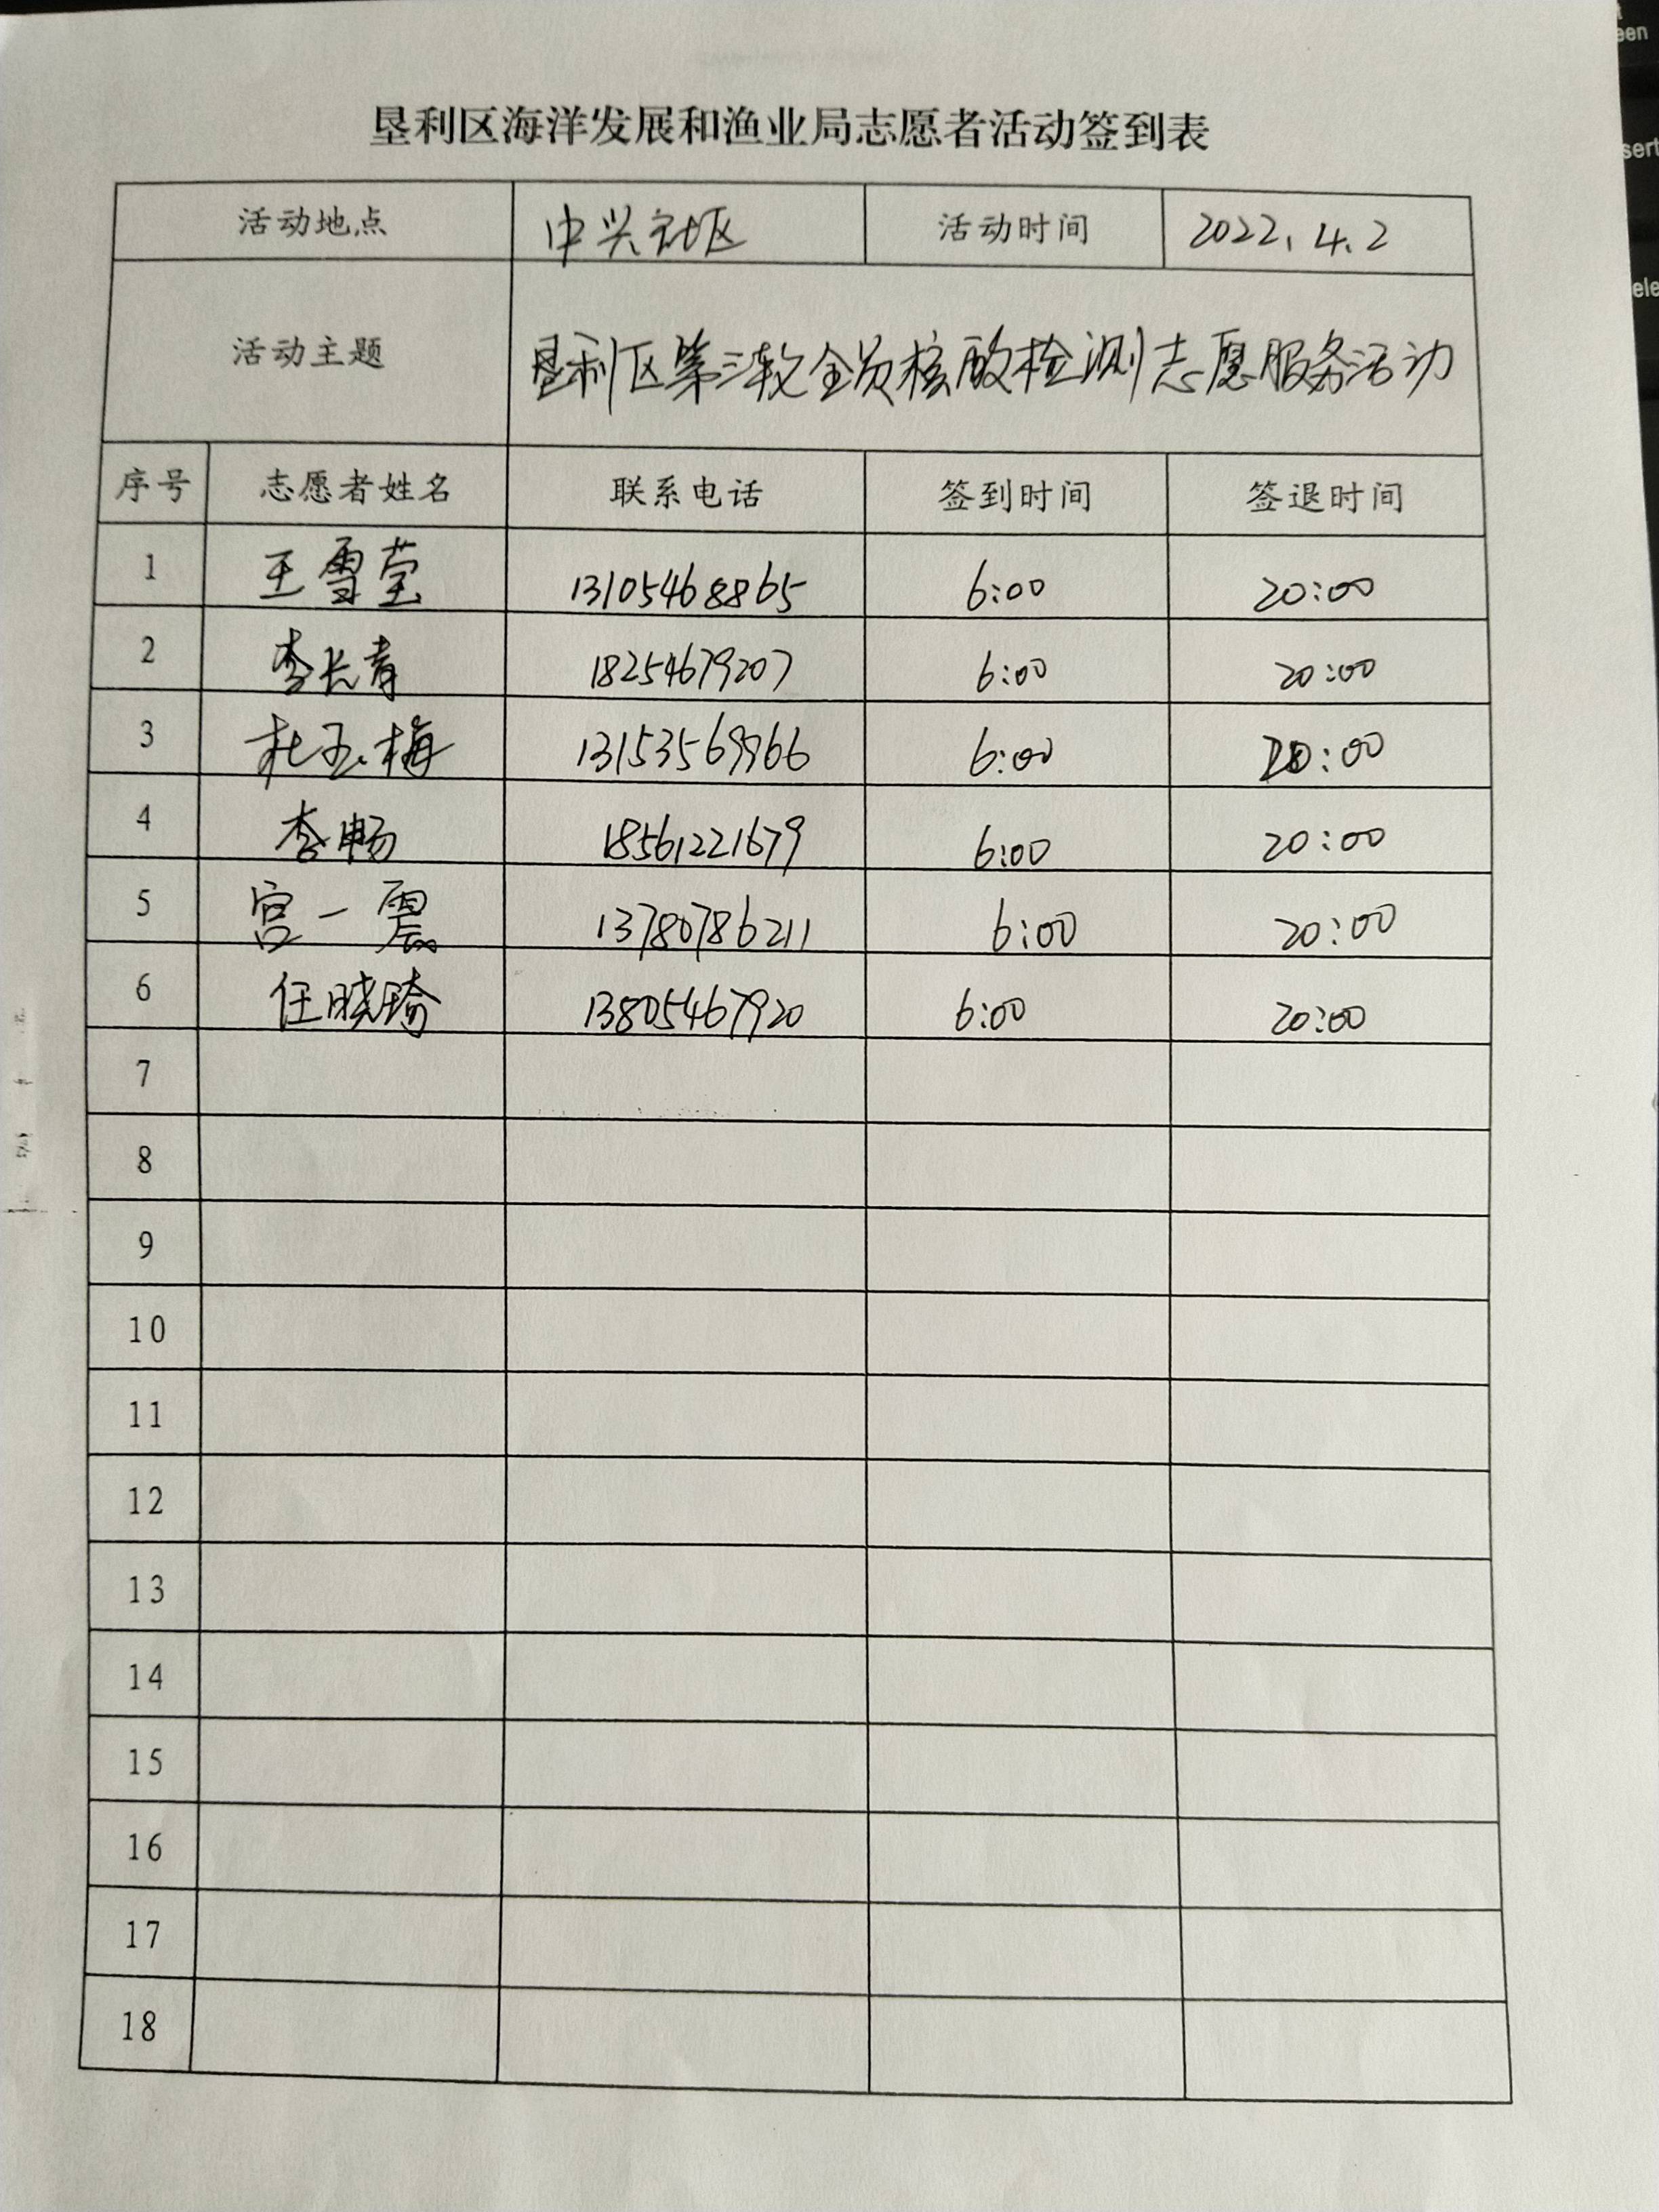 垦利区海洋发展和渔业局志愿者活动签到表
活动地点 中兴社区 活动时间 2022.4.2
活动主题 垦利区第三轮全员核酸检测志愿服务活动
序号 志愿者姓名 联系电话 签到时间 签退时间
1 王雪莹 13105468865 6:00 20:00
2 李长青 18254679207 6:00 20:00
3 杜玉梅 13153569966 6:00 20:00
4 李畅 18561221679 6:00 20:00
5 宫一震 13780786211 6:00 20:00
6 任晓琦 13805467920 6:00 20:00
7
8
9
10
11
12
13
14
15
16
17
18